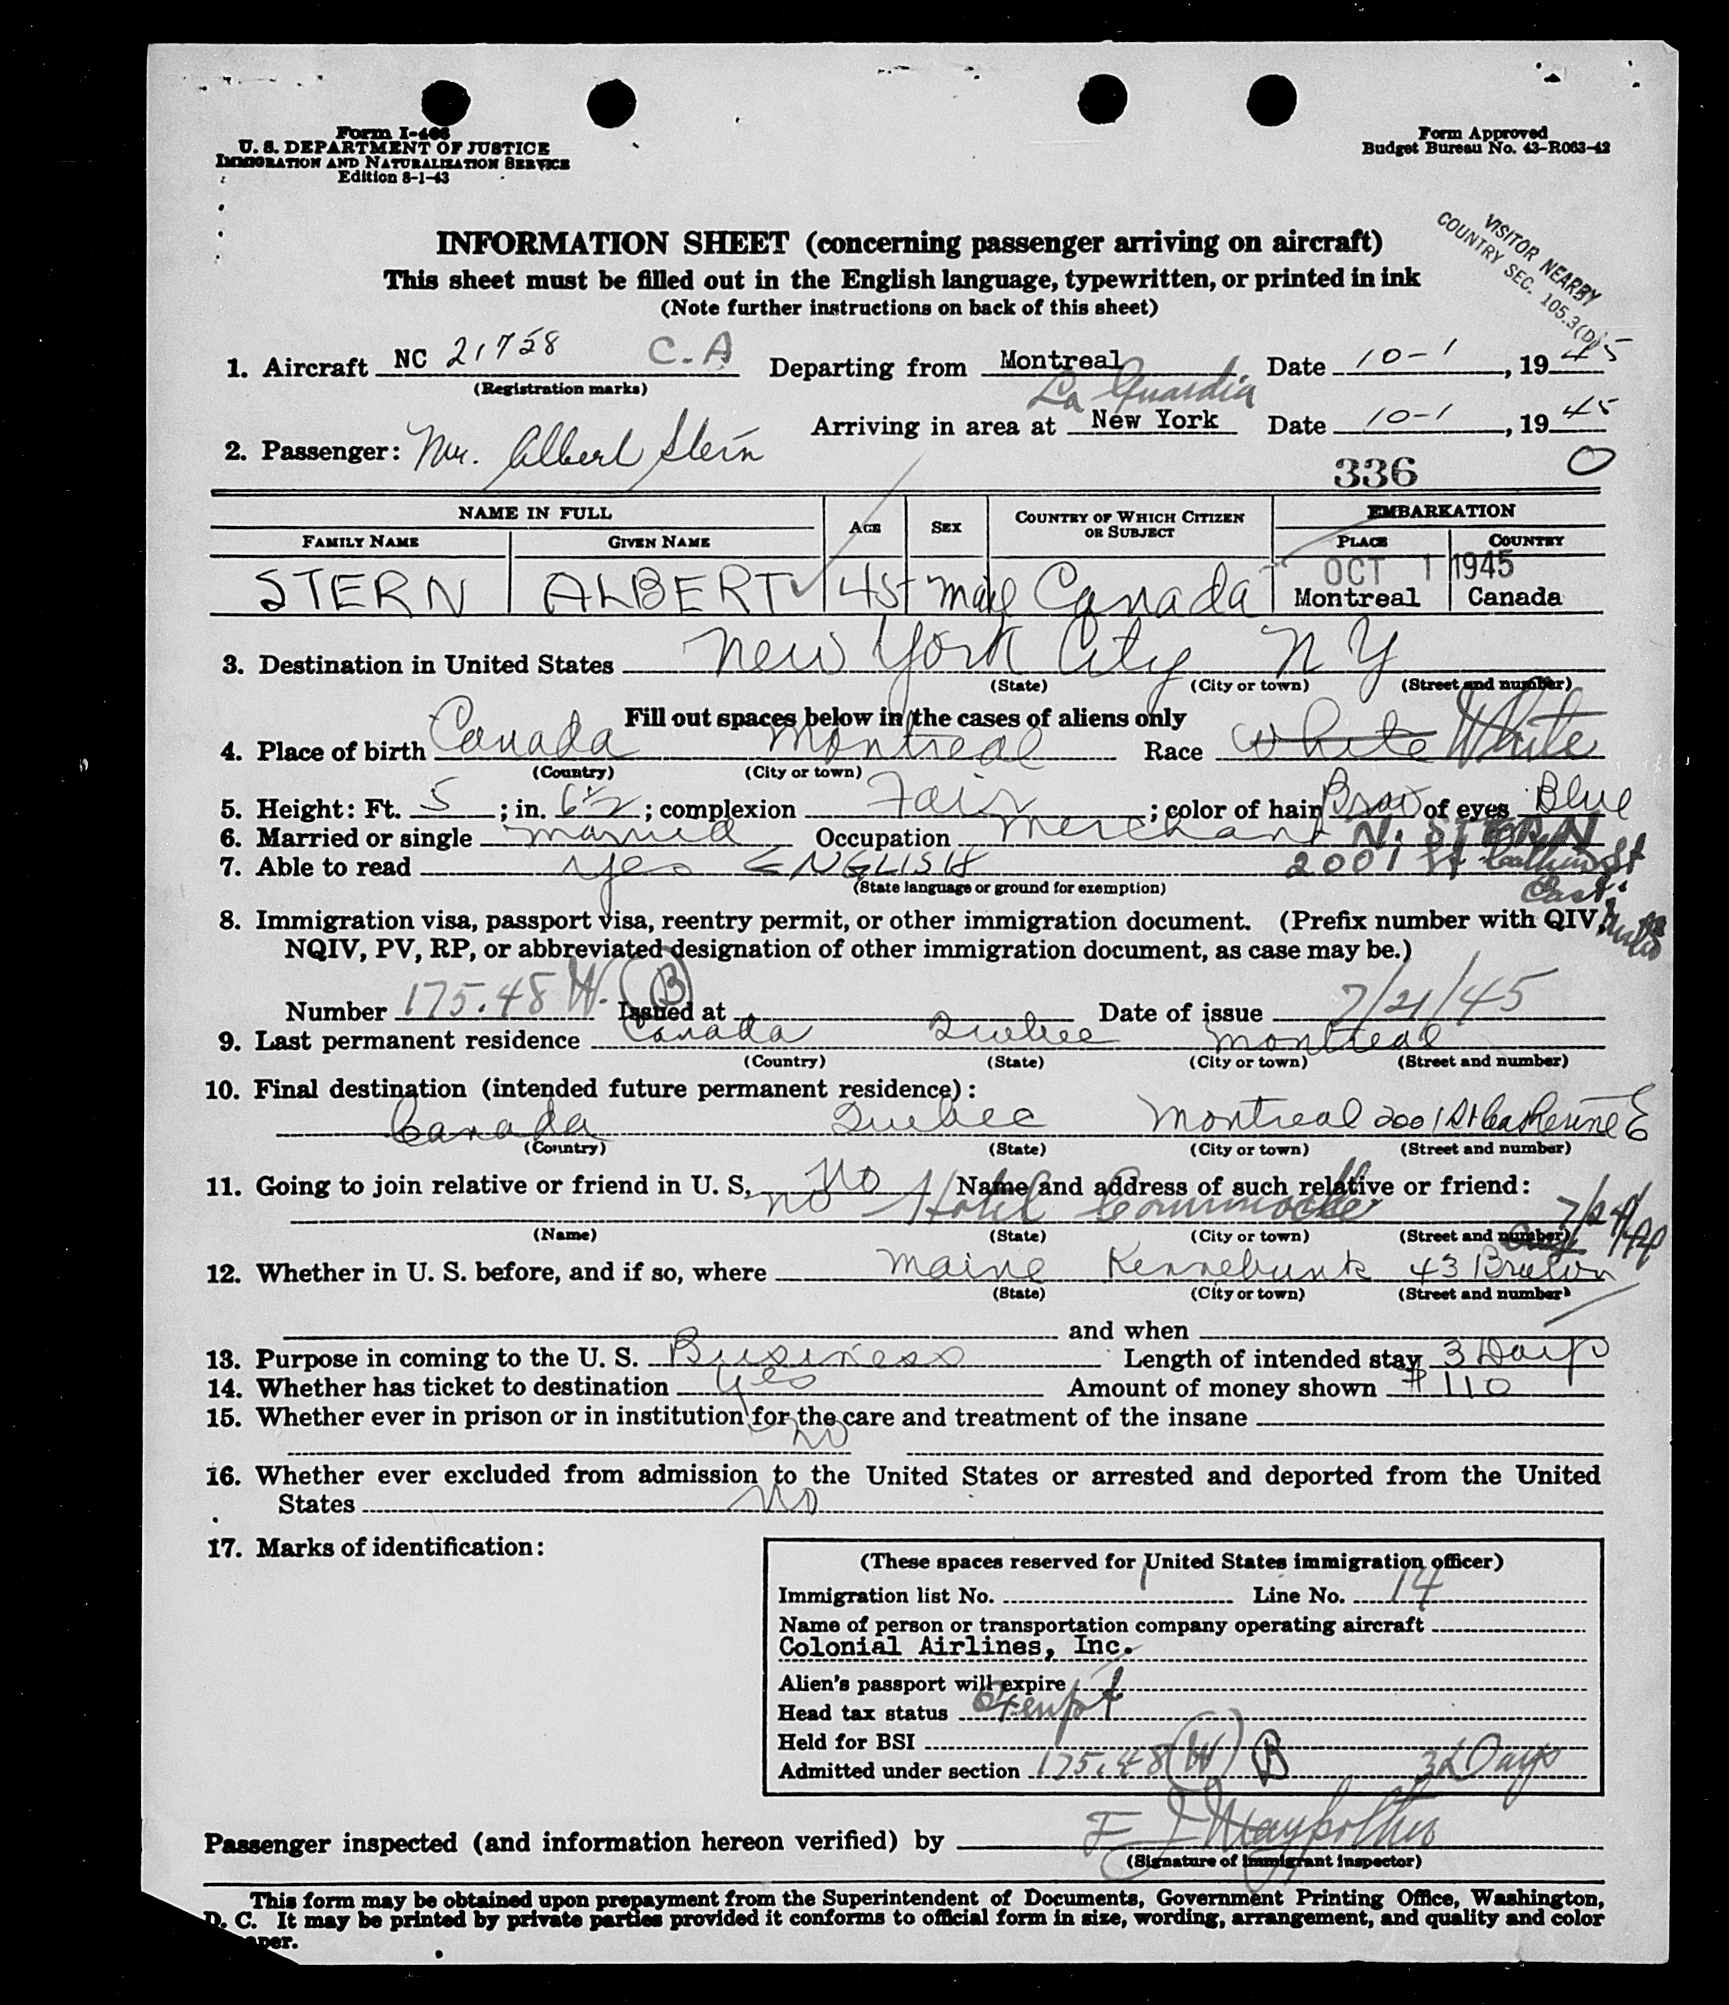 Form I-466
U. S. DEPARTMENT OF JUSTICE
IMMIGRATION AND NATURALIZATION SERVICE
Edition 8-1-43
Form Approved
Budget Bureau No. 43-R063-42
VISITOR NEARBY
COUNTRY SEC. 105.3(D)
INFORMATION SHEET (concerning passenger arriving on aircraft)
This sheet must be filled out in the English language, typewritten, or printed in ink
(Note further instructions on back of this sheet)
1. Aircraft NC 21758 C.A Departing from Montreal Date 10-1, 1945
(Registration marks)
La Guardia
Arriving in area at New York Date 10-1, 1945
2. Passenger: Mr. Albert Stern
336 0
NAME IN FULL AGE SEX COUNTRY OF WHICH CITIZEN OR SUBJECT EMBARKATION
FAMILY NAME GIVEN NAME PLACE COUNTRY
OCT 1 1945
STERN ALBERT 45 Male Canada Montreal Canada
3. Destination in United States New York City N Y
(State) (City or town) (Street and number)
Fill out spaces below in the cases of aliens only
4. Place of birth Canada Montreal Race White White
(Country) (City or town)
5. Height: Ft. 5; in. 6 1/2; complexion Fair; color of hair Brow of eyes Blue
6. Married or single Married Occupation Merchant N. STERN
7. Able to read Yes ENGLISH 2001 St Catherine St
(State language or ground for exemption) East
8. Immigration visa, passport visa, reentry permit, or other immigration document. (Prefix number with QIV,
NQIV, PV, RP, or abbreviated designation of other immigration document, as case may be.)
Number 175.48 W. (B) Issued at Date of issue 7/21/45
9. Last permanent residence Canada Quebec Montreal
(Country) (State) (City or town) (Street and number)
10. Final destination (intended future permanent residence):
Canada Quebec Montreal 2001 St Catherine E
(Country) (State) (City or town) (Street and number)
11. Going to join relative or friend in U. S. No Name and address of such relative or friend:
No Hotel Commodore
(Name) (State) (City or town) (Street and number) 7/24/44
12. Whether in U. S. before, and if so, where Maine Kennebunk 43
(State) (City or town) (Street and number)
and when
13. Purpose in coming to the U. S. Business Length of intended stay 3 Days
14. Whether has ticket to destination Yes Amount of money shown $110
15. Whether ever in prison or in institution for the care and treatment of the insane
No
16. Whether ever excluded from admission to the United States or arrested and deported from the United
States No
17. Marks of identification:
(These spaces reserved for United States immigration officer)
Immigration list No. 1 Line No. 14
Name of person or transportation company operating aircraft
Colonial Airlines, Inc.
Alien's passport will expire
Head tax status Exempt
Held for BSI
Admitted under section 175.48 (W) B 3 Days
Passenger inspected (and information hereon verified) by
(Signature of immigrant inspector)
This form may be obtained upon prepayment from the Superintendent of Documents, Government Printing Office, Washington,
D. C. It may be printed by private parties provided it conforms to official form in size, wording, arrangement, and quality and color